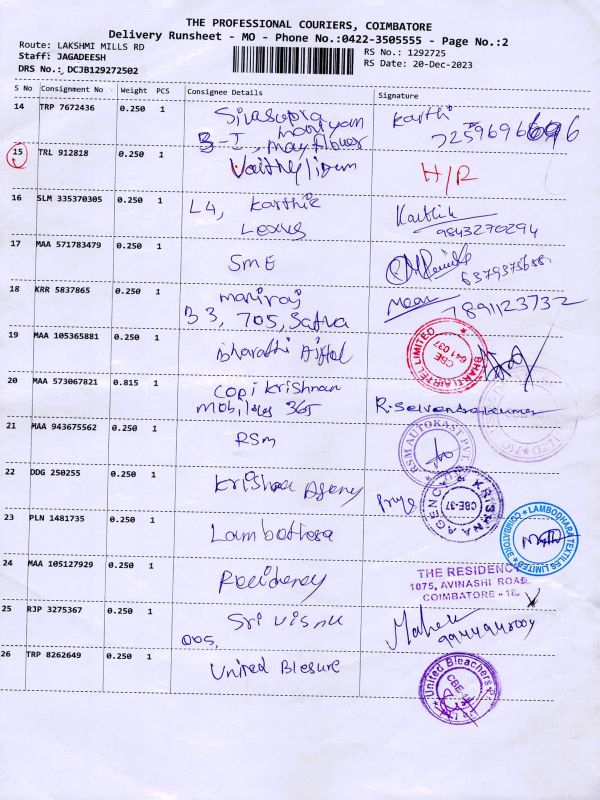 THE PROFESSIONAL COURIERS, COIMBATORE
Delivery Runsheet - MO - Phone No.:0422-3505555 - Page No.:2
Route: LAKSHMI MILLS RD
RS No.: 1292725
Staff: JAGADEESH
RS Date: 20-Dec-2023
DRS No.: DCJB129272502
S No Consignment No Weight PCS Consignee Details Signature
14 TRP 7672436 0.250 1 Karthi
B-I, mayflower
15 TRL 912818 0.250 1 H/R
16 SLM 335370305 0.250 1 L4, Karthik Karthik
Lexus 9843270294
17 MAA 571783479 0.250 1 SmE
18 KRR 5837865 0.250 1 maniraj
B3, 705, Satva 7891123732
19 MAA 105365881 0.250 1 Bharathi Airtel
BHARTI AIRTEL LIMITED
CBE
641 037
20 MAA 573067821 0.815 1 Copi Krishnan
mobiles 365
21 MAA 943675562 0.250 1 RSm
RSM AUTOKAST PVT
22 DDG 250255 0.250 1 Krishna Agency
KRISHNA AGENCY
CBE-37
23 PLN 1481735 0.250 1
LAMBODHARA TEXTILES LIMITED
COIMBATORE
24 MAA 105127929 0.250 1 Recidency
THE RESIDENCY
1075, AVINASHI ROAD
COIMBATORE - 18
25 RJP 3275367 0.250 1 Sri Visnu
005,
26 TRP 8262649 0.250 1 United Blesure
United Bleachers
CBE